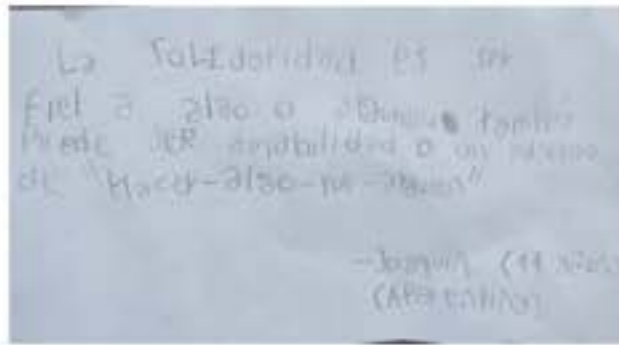 La Solidaridad es ser
Fiel a algo o alguien también
Puede SER amabilidad o un
de "Hacer-algo-por-alguien"
-Joaquin (11 años)
(Argentina)